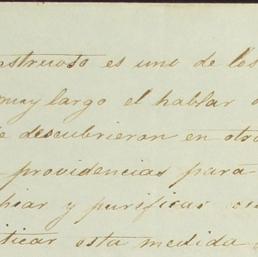 es uno de los
muy largo el hablar
descubrieron en otro
providencias para
y purificar
esta medida